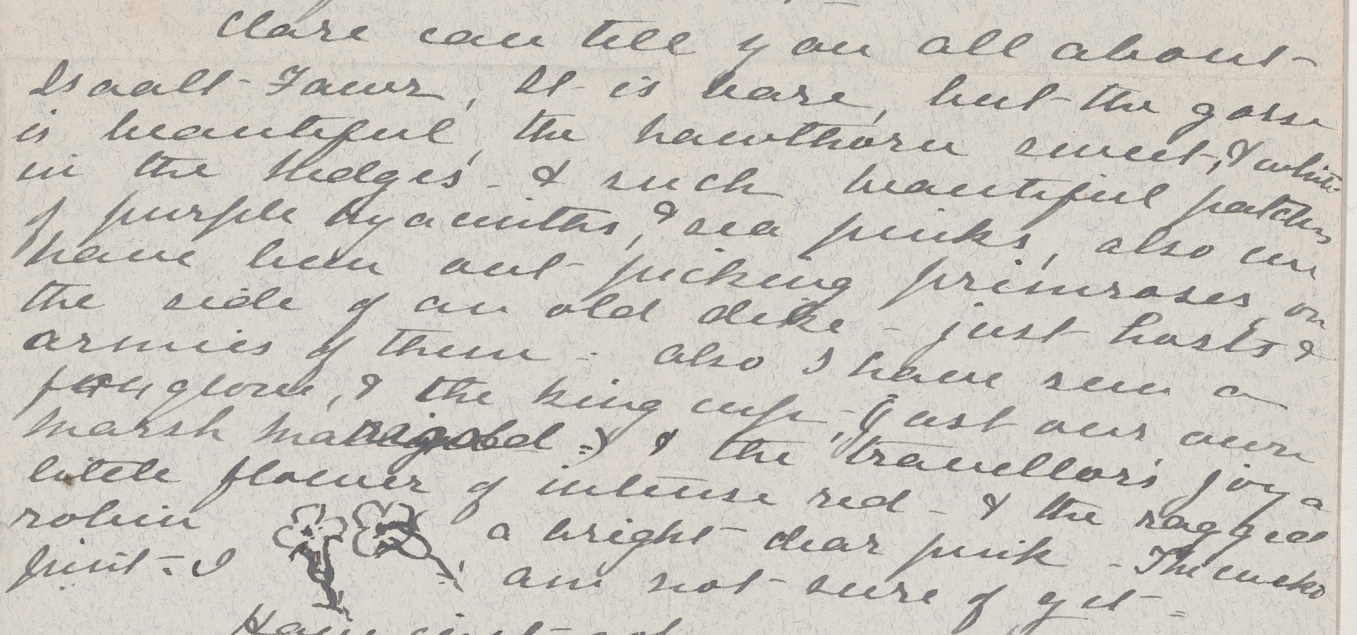 Clare can tell you all about
Isaalt-Tower, It is bare, but the gorse
is beautiful, the hawthorn sweet, & white
in the hedges - & such beautiful patches
of purple hyacinths, & sea pinks, also we
have been out picking primroses, on
the side of an old dike - just hosts &
armies of them - also I have seen a
foxglove, & the king cup, (just our own
marsh marigold.) & the travellors joy a
little flower of intense red - & the ragged
robin a bright dear pink - The cuckoo
pint - I am not sure of yet -
Have just got